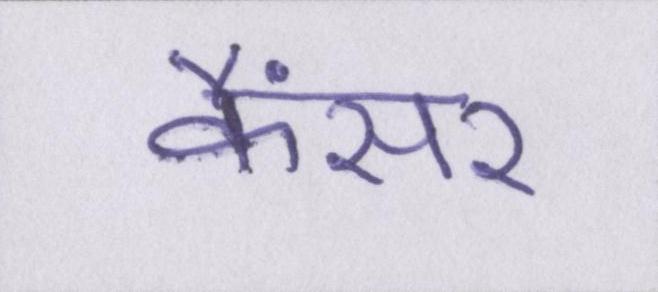 कैंसर